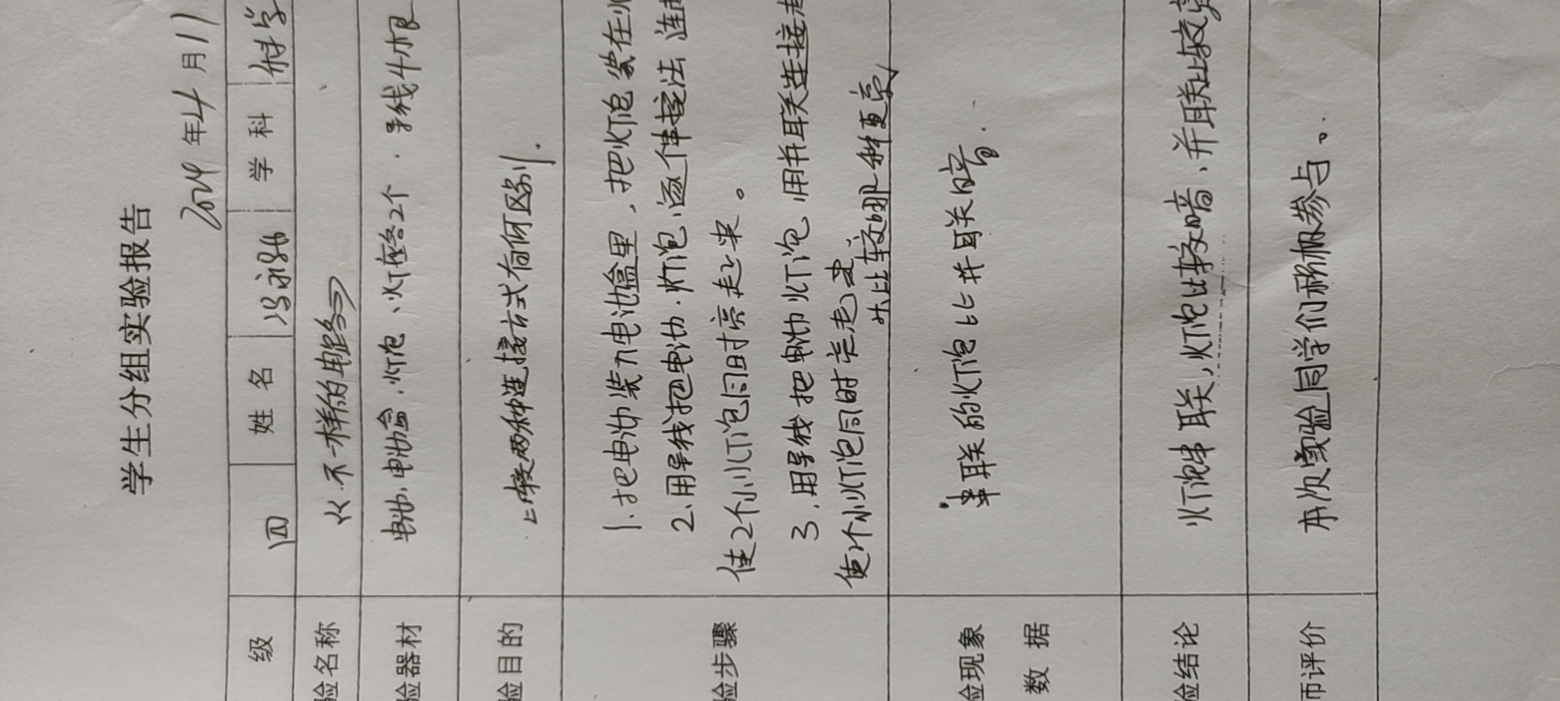 学生分组实验报告
2024年4月11
级 四 姓名 学科 科学
验名称 《不一样的电路》
验器材 电池、电池盒、灯泡、灯座各2个、导线4根
验目的 比较两种连接方式有何区别.
1.把电池装入电池盒里、把灯泡装在灯
2.用导线把电池、灯泡逐个串接法 连
使2个小灯泡同时亮起来。
验步骤 3.用导线把电池灯泡用并联连接起
使2个小灯泡同时亮起来
比较哪一种更亮
验现象 串联的灯泡比并联暗.
数据
验结论 灯泡串联,灯泡比较暗、并联比较亮
师评价 本次实验同学们积极参与。